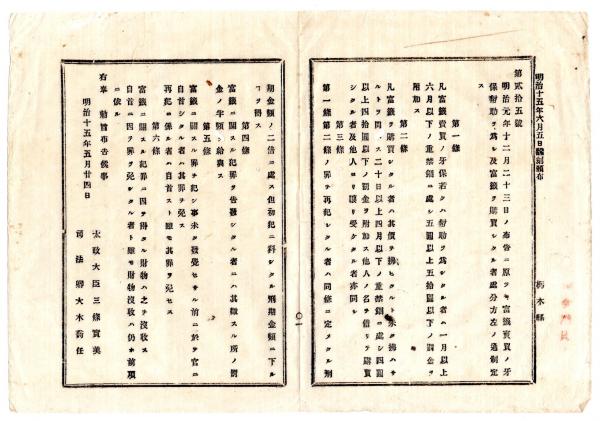 明治十五年六月五日飜刻頒布
栃木縣
第貳拾五號
明治元年十二月二十三日ノ布告ニ原ツキ富籤賣買ノ牙
保幇助ヲ爲シ及富籤ヲ購買シタル者處分方左ノ通制定
ス
第一條
凡富籤賣買ノ牙保若クハ幇助ヲ爲シタル者ハ一月以上
六月以下ノ重禁錮ニ處シ五圓以上五拾圓以下ノ罰金ヲ
附加ス
第二條
凡富籤ヲ購買シタル者ハ其價ヲ拂ヒタルト未タ拂ハサ
ルトヲ問ハス二十日以上四月以下ノ重禁錮ニ處シ四圓
以上四拾圓以下ノ罰金ヲ附加ス他人ノ名ヲ借リテ購買
シタル者及他人ヨリ讓リ受ケタル者亦同シ
第三條
第一條第二條ノ罪ヲ再犯シタル者ハ同條ニ定メタル刑
〇一
期金額ノ二倍ニ處ス但初犯ニ科シタル刑期金額ニ下ル
コヲ得ス
第四條
富籤ニ關スル犯罪ヲ告發シタル者ニハ其徴スル所ノ罰
金ノ半額ヲ給與ス
第五條
富籤ニ關スル罪ヲ犯シ事未タ發覺セサル前ニ於テ官ニ
自首シタル者ハ其罪ヲ免ス
再犯ニ係ル者ハ自首スト雖モ其罪ヲ免セス
第六條
富籤ニ關スル犯罪ニ因テ得タル財物ハ之ヲ沒收ス
自首ニ因テ罪ヲ免シタル者ト雖モ財物沒收ハ仍ホ前項
ニ依ル
右奉 勅旨布告候事
明治十五年五月廿四日
太政大臣三條實美
司法卿大木喬任